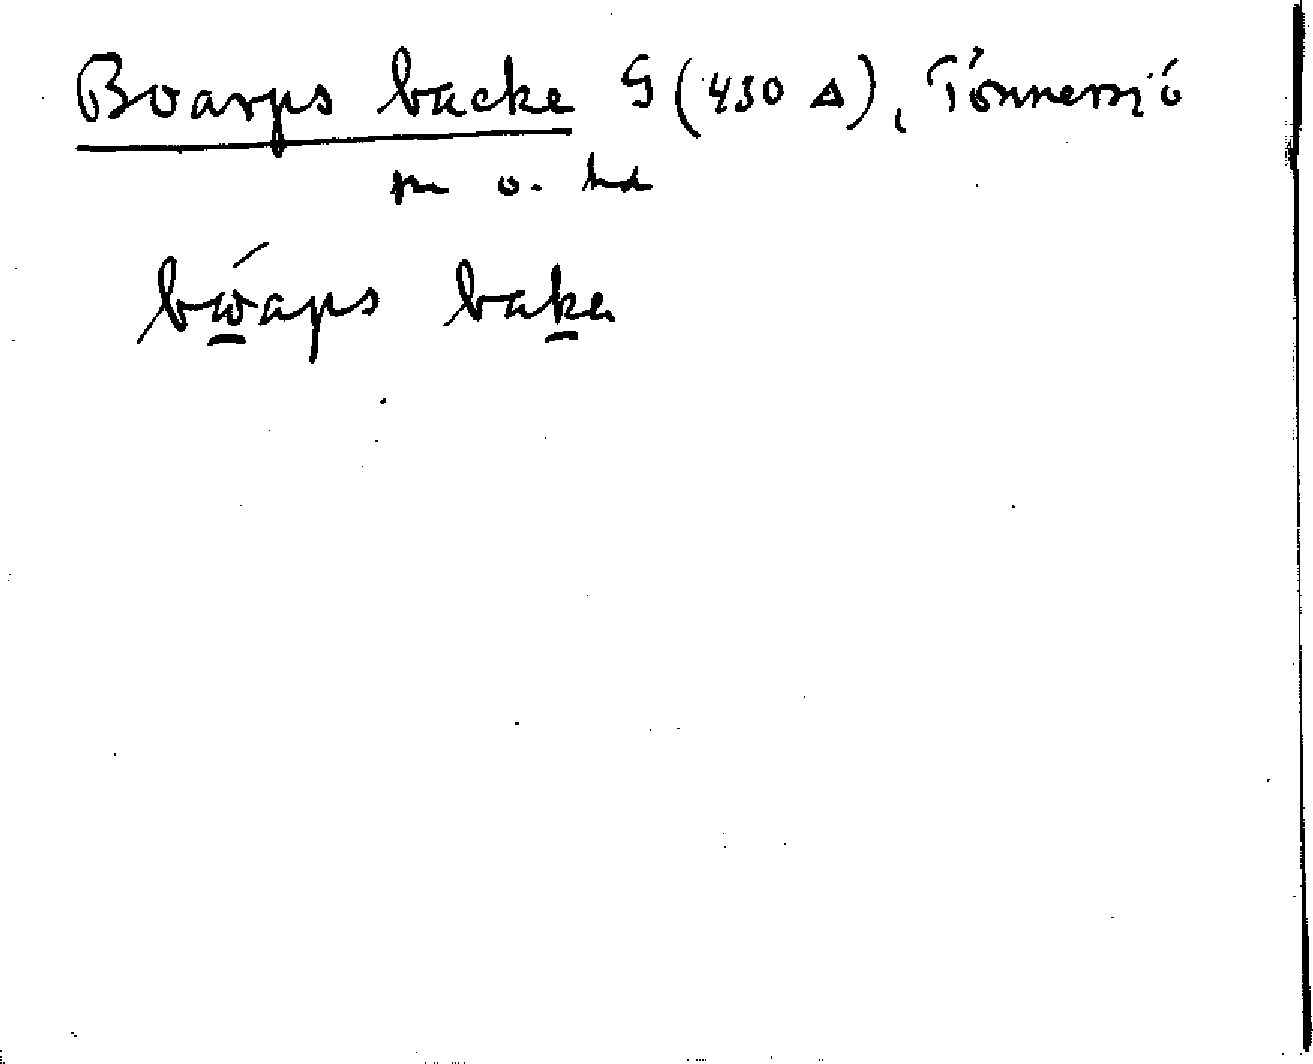 Boarps backe G (430 Δ), Tönnersjö
sn o. hd
bẃaps bake